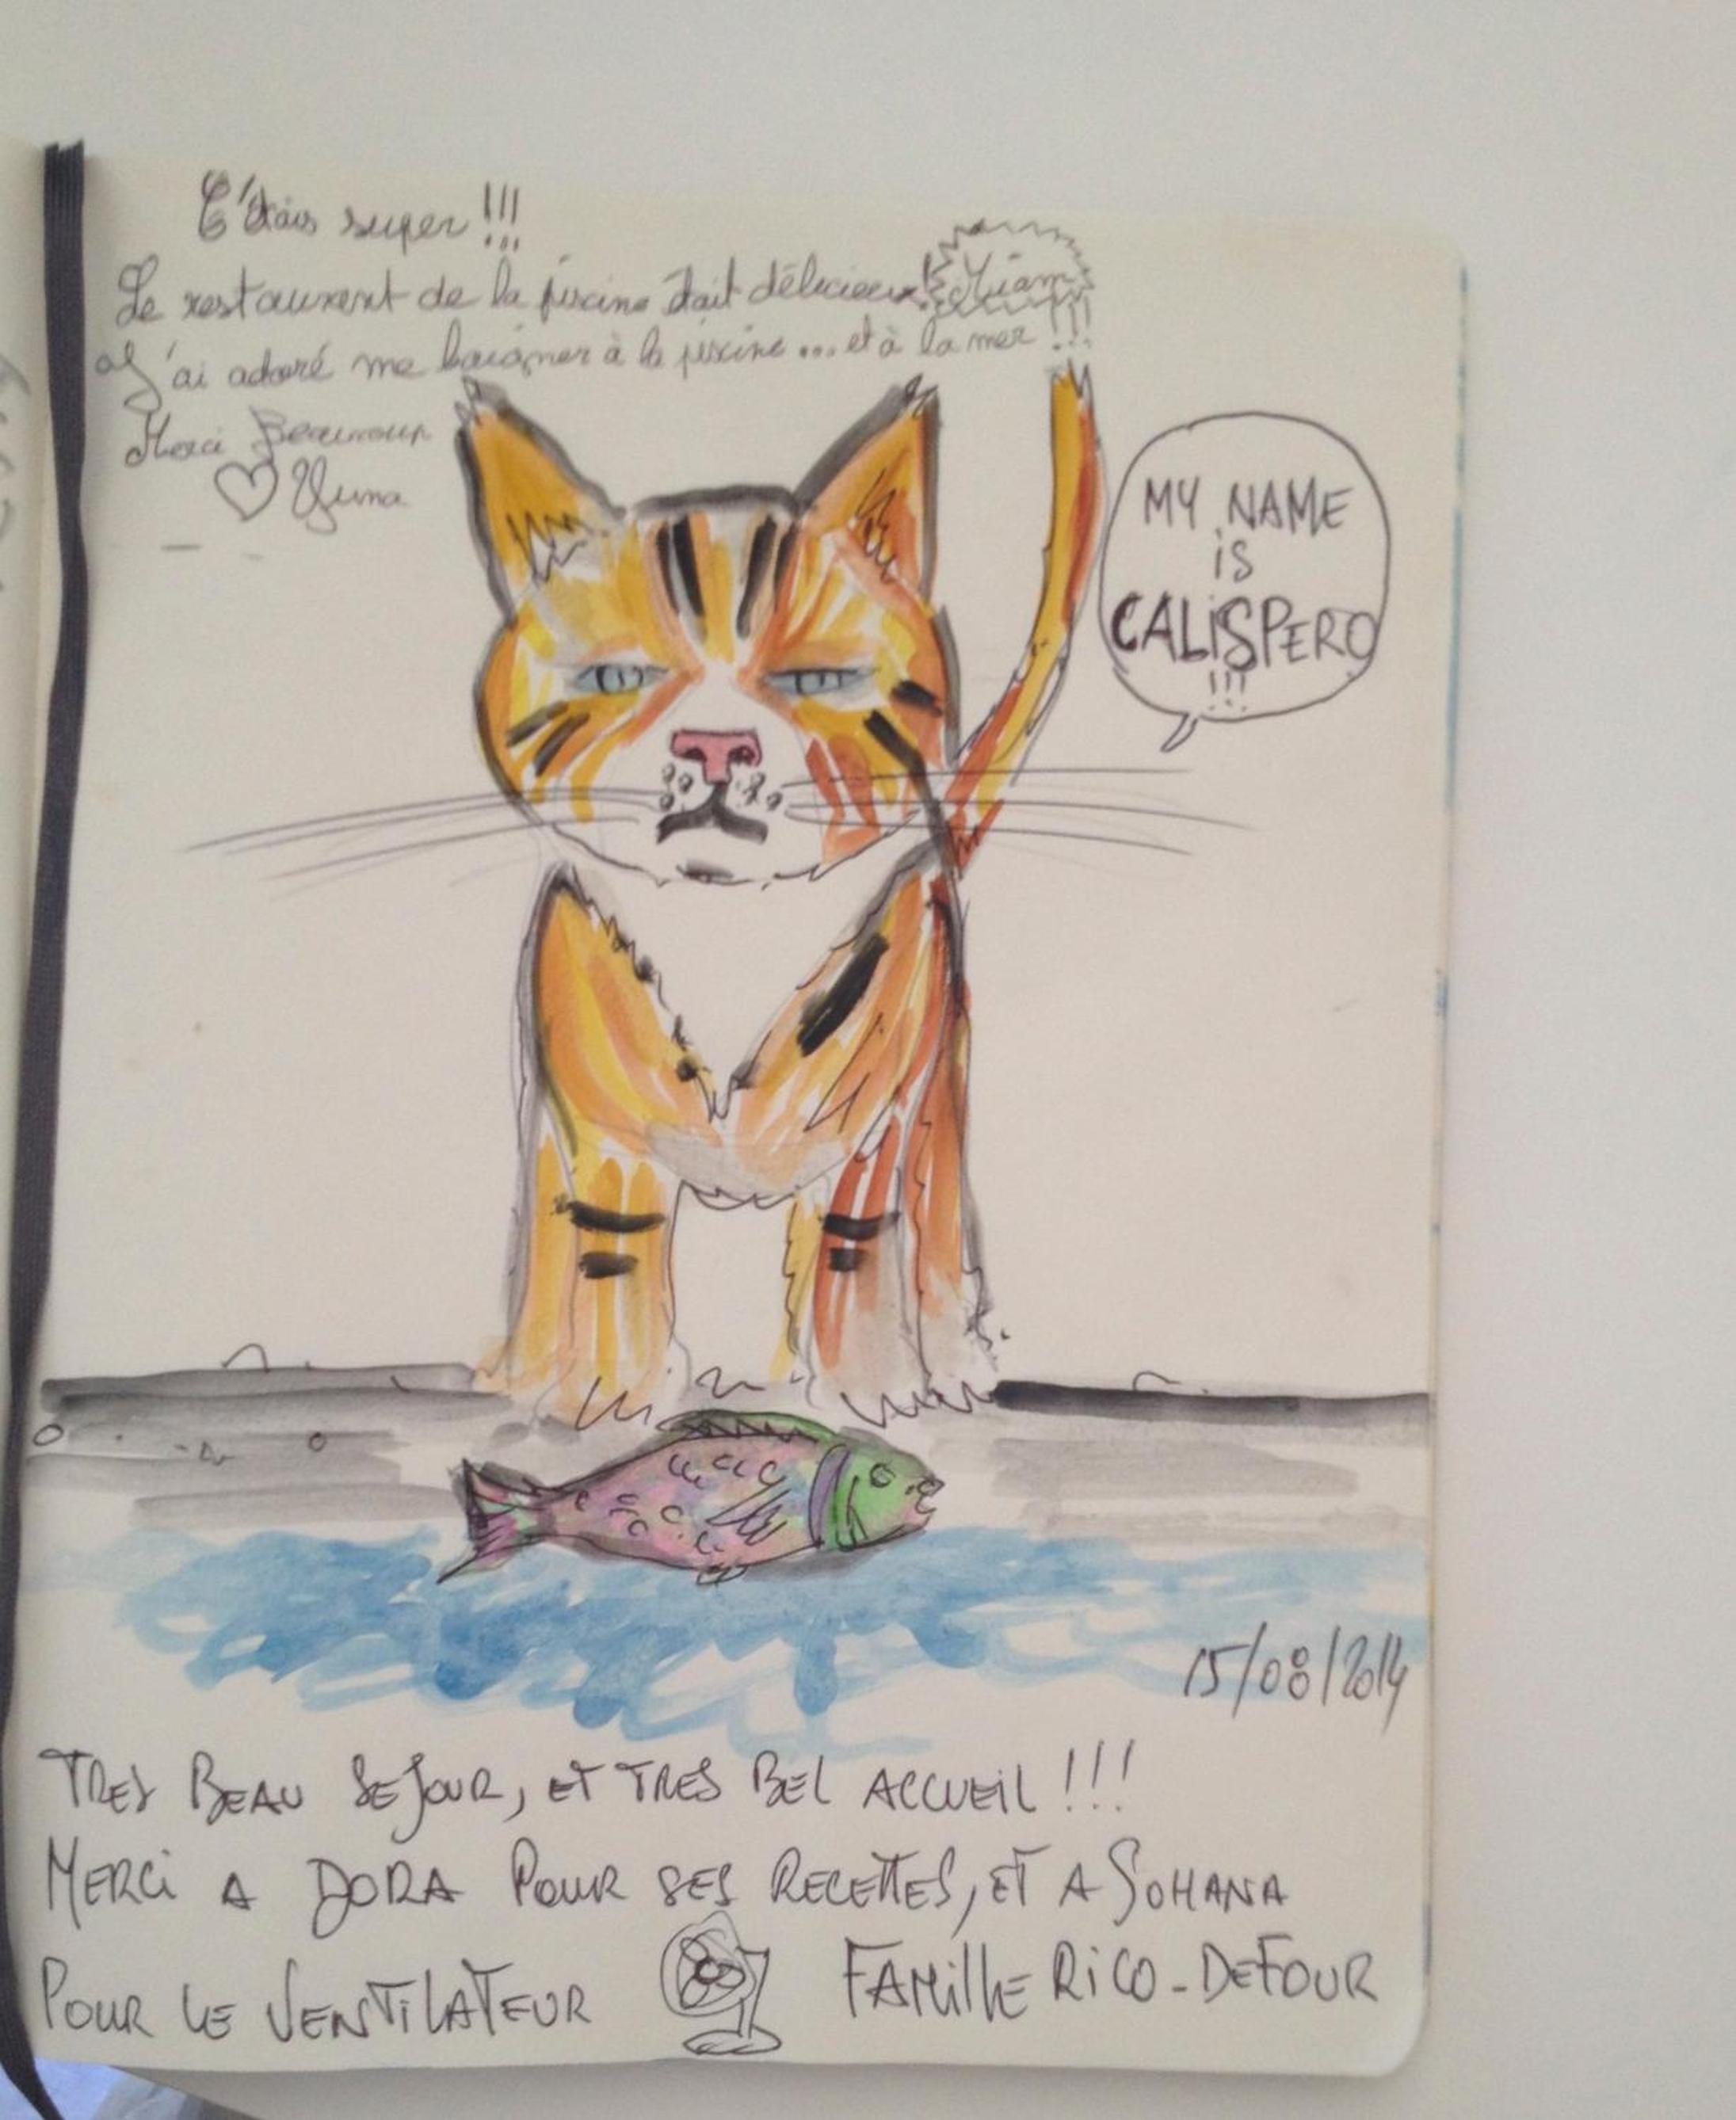 C'étais super !!!
Le restaurent de la piscine était délicieux! Miam
J'ai adoré me baigner à la piscine ... et à la mer !!!
Merci Beaucoup
♡ Yuna
MY NAME
iS
CALiSPERO
!!!
15/08/2014
TRES BEAU SEJOUR, ET TRES BEL ACCUEIL !!!
MERCi A DORA POUR SES RECETTES, ET A SOHANA
POUR LE VENTiLATEUR FAMillE RiCO-DEFOUR